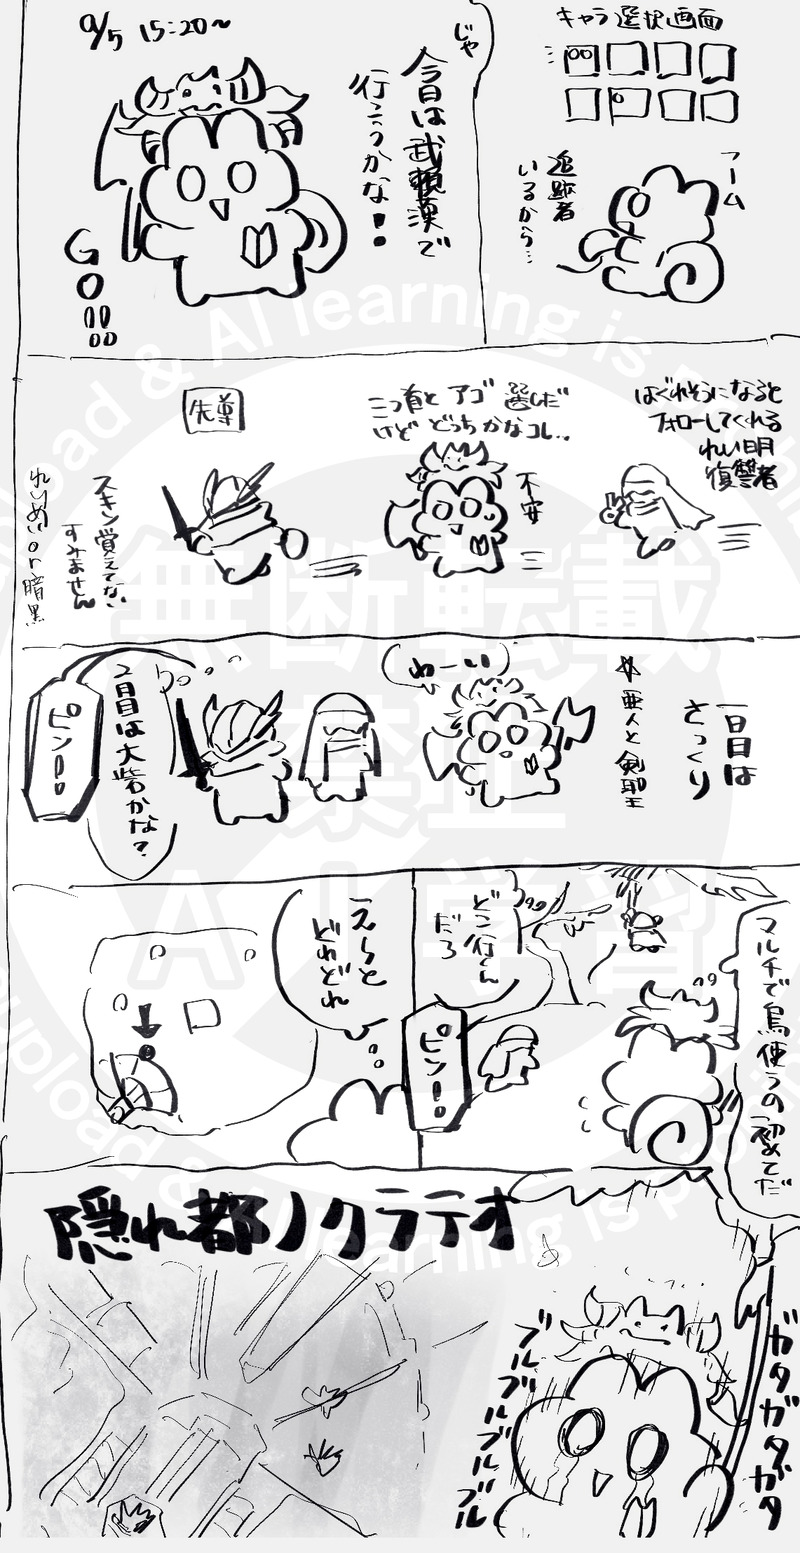 キャラ選択画面
うーム
追跡者
いるから…
じゃ
今日は武頼漢で
行こうかな!
9/5 15:20~
GO!!!
はぐれそうになると
フォローしてくれる
れい明
復讐者
三つ首とアゴ 選んだ
けど どっちかなコレ…
不安
先導
スキン覚えてない
すみません
れいめい or 暗黒
一日目は
さっくり
☆亜人と剣聖
わーい
2日目は大砦かな?
ピン!!
マルチで鳥使うの初めてだ
どこ行くん
だろ
ピン!!
えーと
どれどれ
隠れ都ノクラテオ
ガタガタガタ
ブルブルブルブルブル
無断転載
禁止
AI学習
upload & AI learning is p
upload & AI learning is p